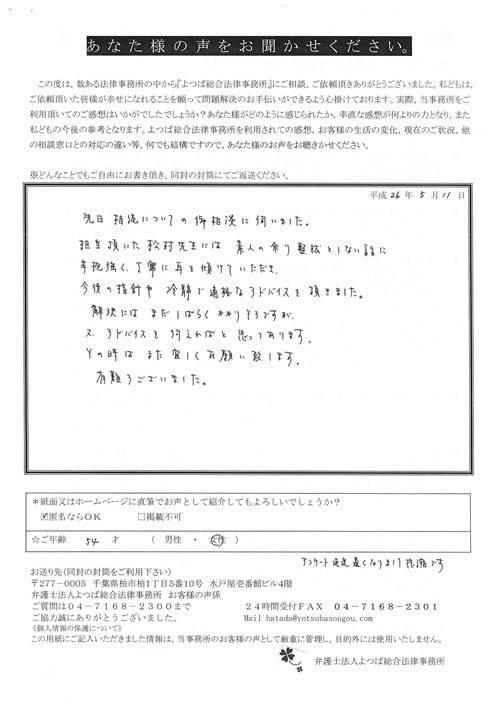 あなた様の声をお聞かせください。
この度は、数ある法律事務所の中から『よつば総合法律事務所』にご相談、ご依頼頂きありがとうございました。私どもは、
ご依頼頂いた皆様が幸せになれることを願って問題解決のお手伝いができるよう心掛けております。実際、当事務所をご
利用頂いてのご感想はいかがでしたでしょうか？あなた様がどのように感じられたか、率直な感想が何よりの力となり、また
私どもの今後の参考となります。よつば総合法律事務所を利用されての感想、お客様の生活の変化、現在のご状況、他
の相談窓口との対応の違い等、何でも結構ですので、あなた様のお声をお聴きかせください。
※どんなことでもご自由にお書き頂き、同封の封筒にてご返送ください。
平成 26 年 5 月 11 日
先日 相続についての御相談に伺いました。
担当頂いた松村先生には 素人の余り整然としない話に
辛抱強く、丁寧に耳を傾けていただき、
今後の指針や 冷静で適格なアドバイスを頂きました。
解決には まだしばらく かかりそうですが、
又、アドバイスを伺えればと思っております。
その時は また宜しくお願い致します。
有難うございました。
＊紙面又はホームページに直筆でお声として紹介してもよろしいでしょうか？
☑匿名ならOK □掲載不可
☆ご年齢 54 才 （ 男性 ・ 女性 ）
アンケート返送遅くなりまして恐縮です
お送り先（同封の封筒をご利用下さい）
〒277－0005 千葉県柏市柏1丁目5番10号 水戸屋壱番館ビル4階
弁護士法人よつば総合法律事務所 お客様の声係
ご質問は04－7168－2300まで 24時間受付FAX 04－7168－2301
ご協力誠にありがとうございました。 Mail hatada@yotsubasougou.com
《個人情報の保護について》
この用紙にご記入いただきました情報は、当事務所のお客様の声として厳重に管理し、目的外には使用いたしません。
弁護士法人よつば総合法律事務所